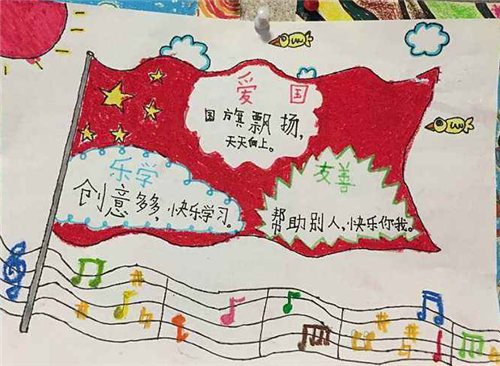 爱国
国旗飘扬，
天天向上。
乐学
创意多多，快乐学习。
友善
帮助别人，快乐你我。